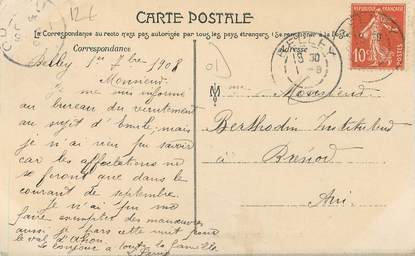 12€
CARTE POSTALE
La Correspondance au recto n'est pas autorisée par tous les pays étrangers. (Se renseigner à la Poste)
Correspondance
Adresse
BELLEY
RÉPUBLIQUE FRANÇAISE
10c
Belley 1er 7bre 1908
Monsieur
Je me suis informé
au bureau du recrutement
au sujet d'Emile, mais
je n'ai rien pu savoir
car les affectations ne
se feront que dans le
courant de septembre.
Je n'ai pu me
faire exempter des manœuvres
aussi je pars cette nuit pour
le val d'Ahon.
Le bonjour à toute la famille
Monsieur
Berthodin Instituteur
à
Brénod
Ain